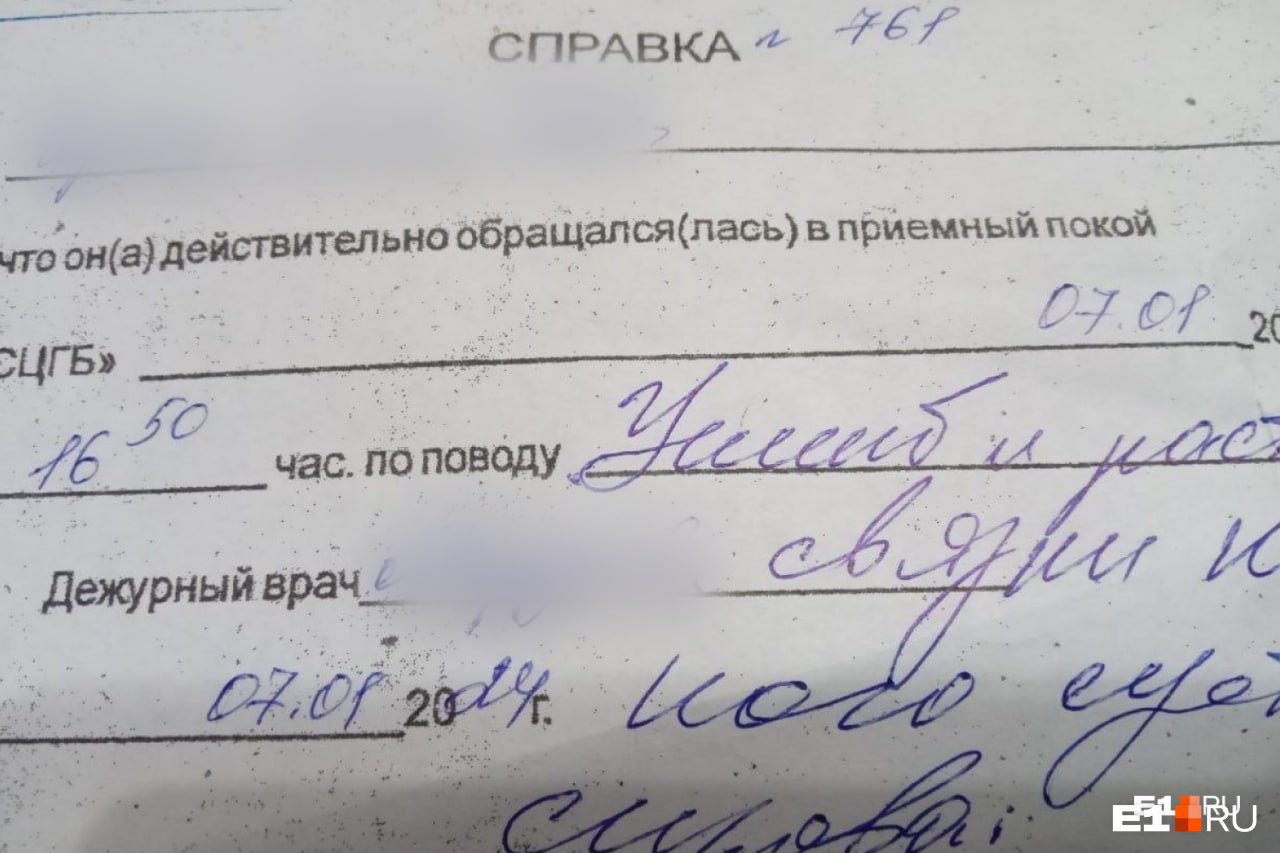 СПРАВКА № 761
что он(а) действительно обращался(лась) в приемный покой
СЦГБ» 07.01 20
16 50 час. по поводу Ушиб и раст
Дежурный врач связки
07.01 2024 г. ного суст
E1.RU